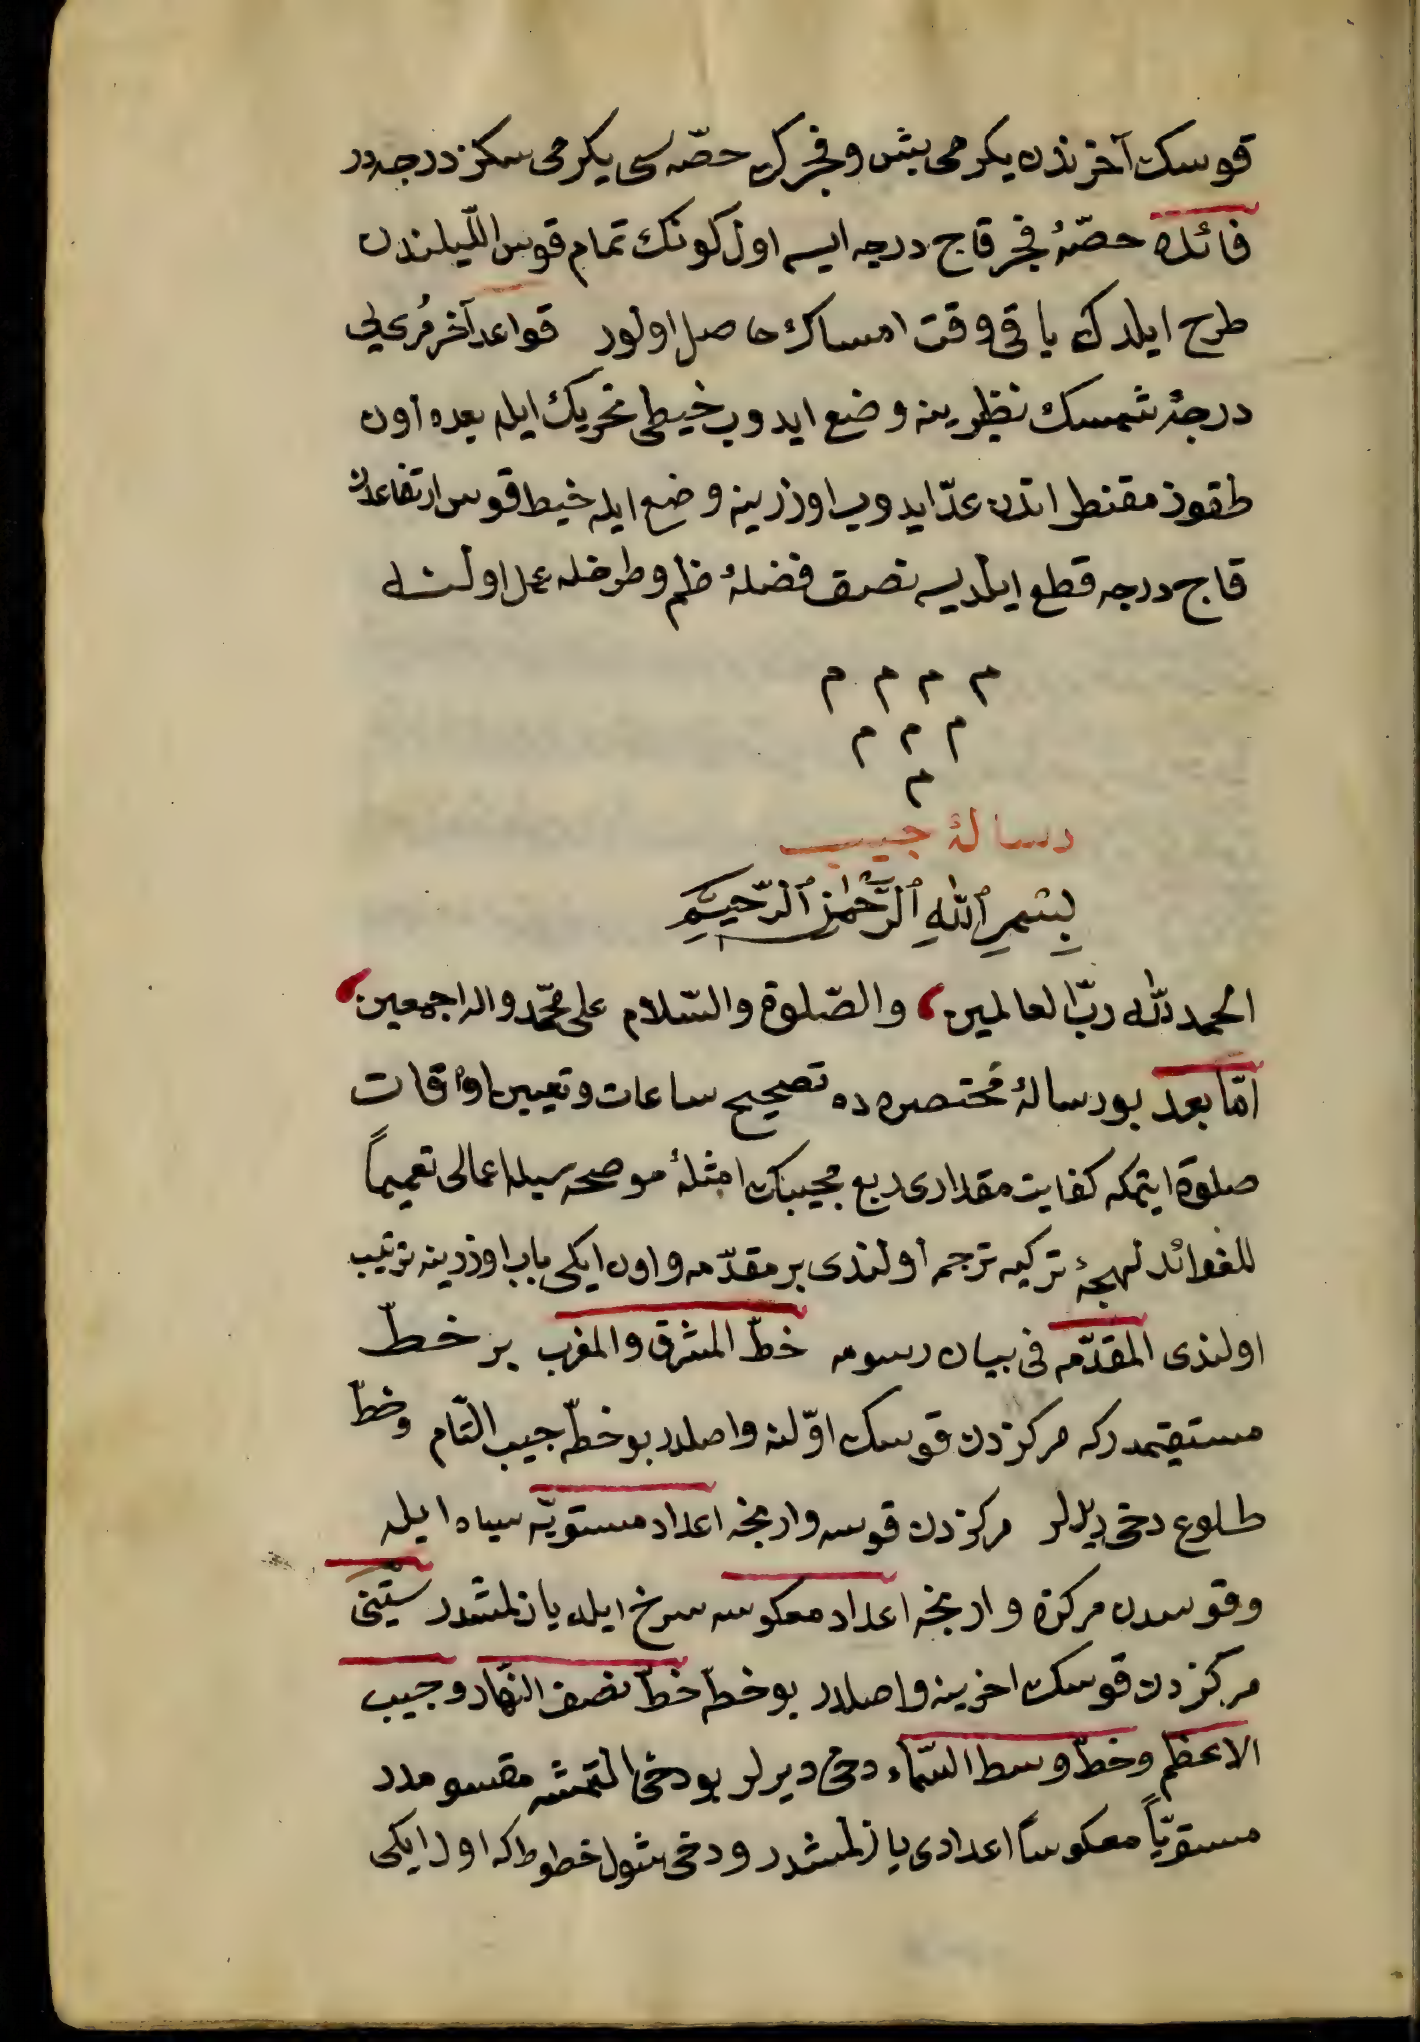 قوسك آخرندن يكرمى بش وفجرك حصّه سى يكرمى سكز درجه در
فائده حصّۀ فجر قاج درجه ايسه اول كونك تمام قوس اللّيلندن
طرح ايلدك باقى وقت امساك حاصل اولور قواعد آخر مُرى يى
درجۀ شمسك نظيرينه وضع ايدوب خيطى تحريك ايله بعده اون
طقوز مقنطراتدن عدّ ايدوب اوزرينه وضع ايله خيط قوس ارتفاعدن
قاج درجه قطع ايلديسه نصف فضلۀ ظلم وطرخله عمل اولنه
م م م م
م م م
م
رسالۀ جيب
بِسْمِ ٱللّٰهِ ٱلرَّحْمٰنِ ٱلرَّحِيمِ
الحمد لله ربّ العالمين، والصّلوة والسّلام على محمّد واله اجمعين،
امّا بعد بو رسالۀ مُختصره ده تصحيح ساعات وتعيين اوقات
صلوة ايتمكه كفايت مقدارى ربع مجيبك امثلۀ موضحه سيله اعمالى تعميماً
للفوائد لهجۀ تركيه ترجمه اولندى بر مقدّمه واون ايكى باب اوزرينه ترتيب
اولندى المقدّمه فى بيان رسومه خطّ المشرق والمغرب بر خطّ
مستقيمدركه مركزدن قوسك اوّلنه واصلدر بو خطّه جيب التّام وخطّ
طلوع دخى ديلر مركزدن قوسه وارنجه اعداد مستويّه سياه ايله
وقوسدن مركزه وارنجه اعداد معكوسه سرخ ايله يازلمشدر ستّينى
مركزدن قوسك اخرينه واصلدر بو خطّه خطّ نصف النّهار وجيب
الاعظم وخطّ وسط السّماء دخى ديرلر بو دخى التمشه مقسومدر
مستويّاً معكوساً اعدادى يازلمشدر ودخى شول خطوط كه اول ايكى